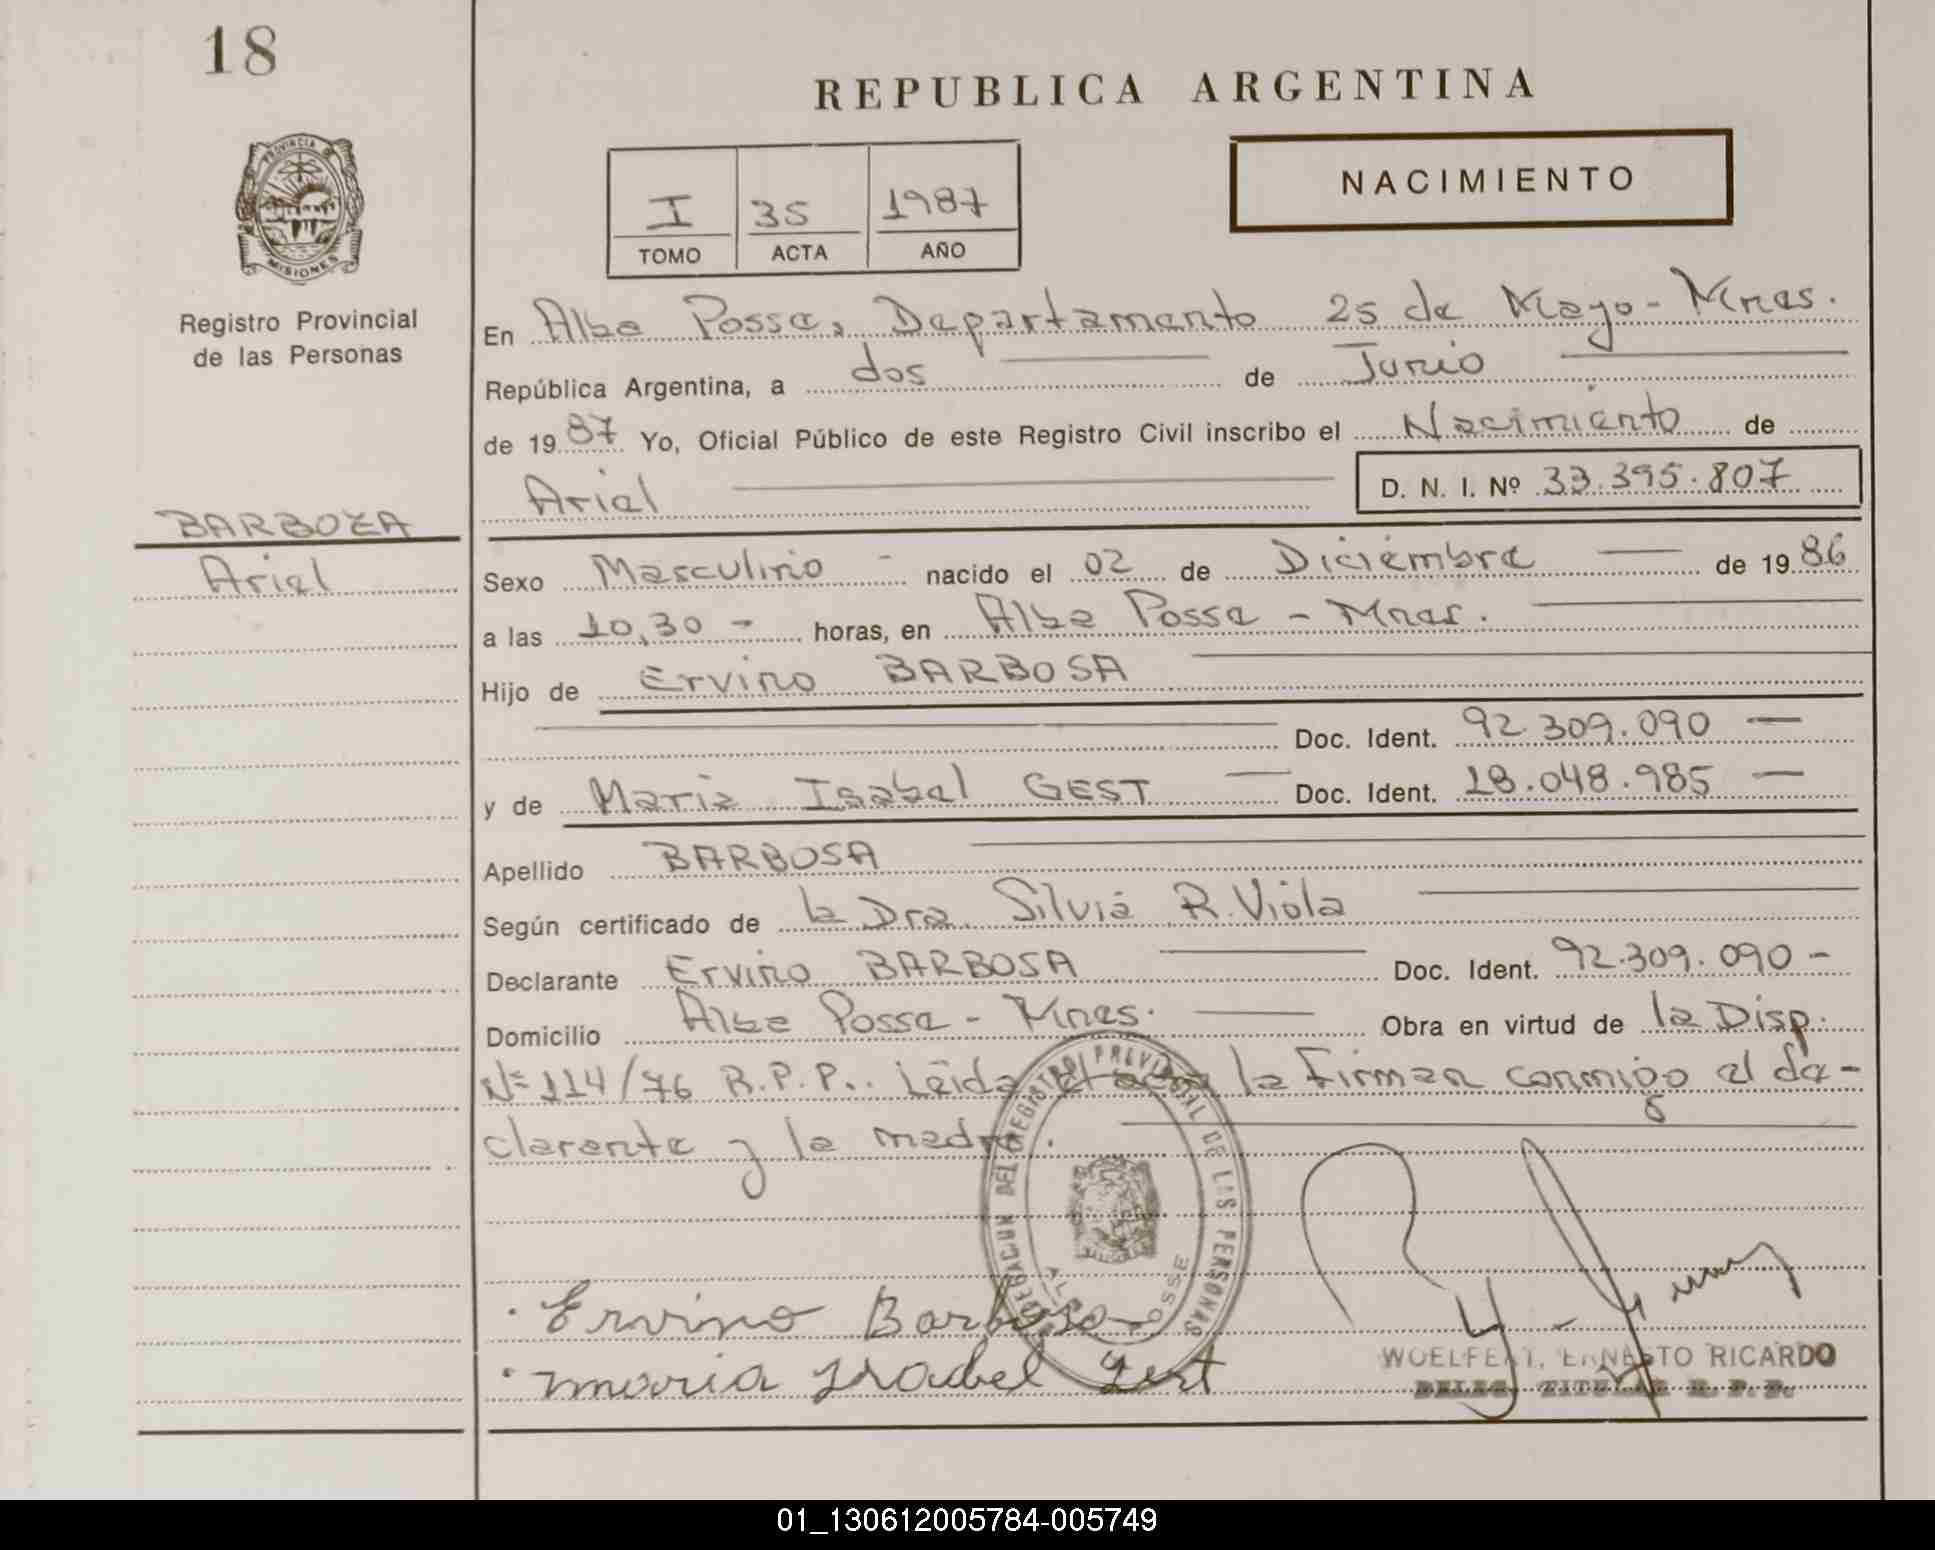 18
REPUBLICA ARGENTINA
PROVINCIA DE
MISIONES
Registro Provincial
de las Personas
NACIMIENTO
I 35 1987
TOMO ACTA AÑO
En Alba Posse, Departamento 25 de Mayo - Mnes.
República Argentina, a dos de Junio
de 1987 Yo, Oficial Público de este Registro Civil inscribo el Nacimiento de
Ariel D. N. I. Nº 33.395.807
BARBOZA
Ariel
Sexo Masculino - nacido el 02 de Diciembre de 1986
a las 10,30 - horas, en Alba Posse - Mnes.
Hijo de Ervino BARBOSA
Doc. Ident. 92.309.090 —
y de Maria Isabel GEST — Doc. Ident. 18.048.985 —
Apellido BARBOSA
Según certificado de la Dra. Silvia R. Viola
Declarante Ervino BARBOSA Doc. Ident. 92.309.090 -
Domicilio Alba Posse - Mnes. Obra en virtud de la Disp.
Nº 114/76 R.P.P.. Leida el acta la firman conmigo el de-
clarante y la madre.
DELEGACION DEL REGISTRO PROVINCIAL DE LAS PERSONAS
ALBA POSSE
Ervino Barbosa
maria Isabel Gest
WOELFERT, ERNESTO RICARDO
DELEG. TITULAR R. P. P.
01_130612005784-005749